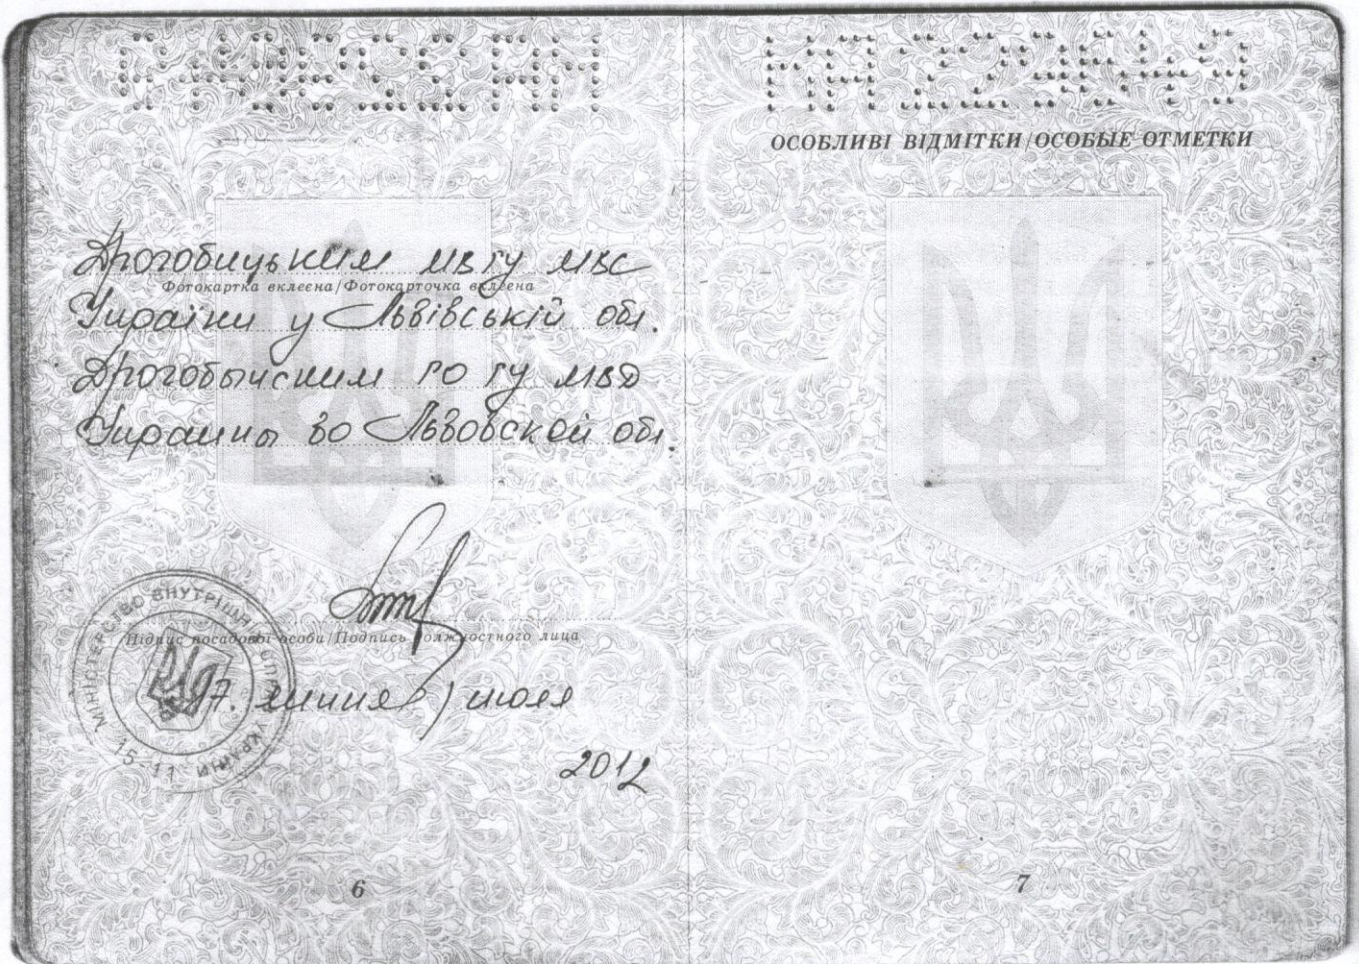 Дрогобицьким МВ ГУ МВС
Фотокартка вклеєна/Фотокарточка вклеена
України у Львівській обл.
Дрогобычским ГО ГУ МВД
Украины во Львовской обл.
Підпис посадової особи/Подпись должностного лица
МІНІСТЕРСТВО ВНУТРІШНІХ СПРАВ УКРАЇНИ
15-11
17. липня / июля
2012
6
ОСОБЛИВІ ВІДМІТКИ/ОСОБЫЕ ОТМЕТКИ
7